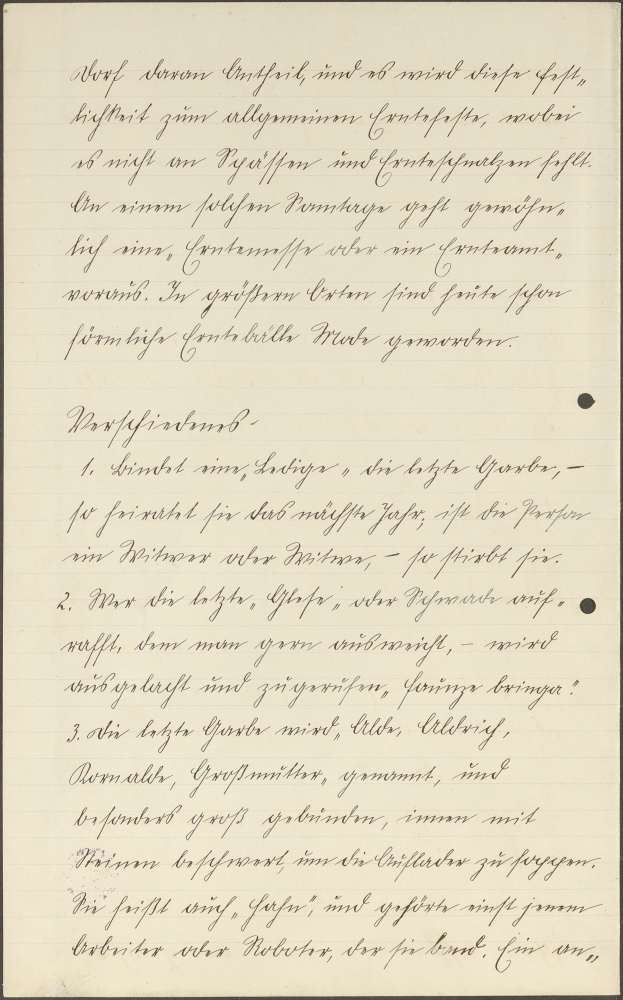 Dorf daran Antheil, und es wird diese fest„
lichkeit zum allgemeinen Erntefeste, wobei
es nicht an Spässen und Ernteschnalzen fehlt.
An einem solchen Samtage geht gewöhn„
lich eine „Erntemesse oder ein Ernteamt„
voraus. In größern Orten sind heute schon
förmliche Erntebälle Mode geworden.
Verschiedenes-
1. Bindet eine „Ledige„ die letzte Garbe, –
so heiratet sie das nächste Jahr, ist die Person
ein Witwer oder Witwe, – so stirbt sie.
2. Wer die letzte „Glese„ oder Schwade auf„
rafft, dem man gern ausweicht, – wird
ausgelacht und zugerufen „ bringa".
3. Die letzte Garbe wird „Alde, Aldrich,
Kornalde, Großmutter„ genannt, und
besonders groß gebunden, innen mit
Steinen beschwert, um die Auflader zu foppen.
Sie heißt auch „Hahn", und gehörte einst jenem
Arbeiter oder Roboter, der sie band. Ein an„